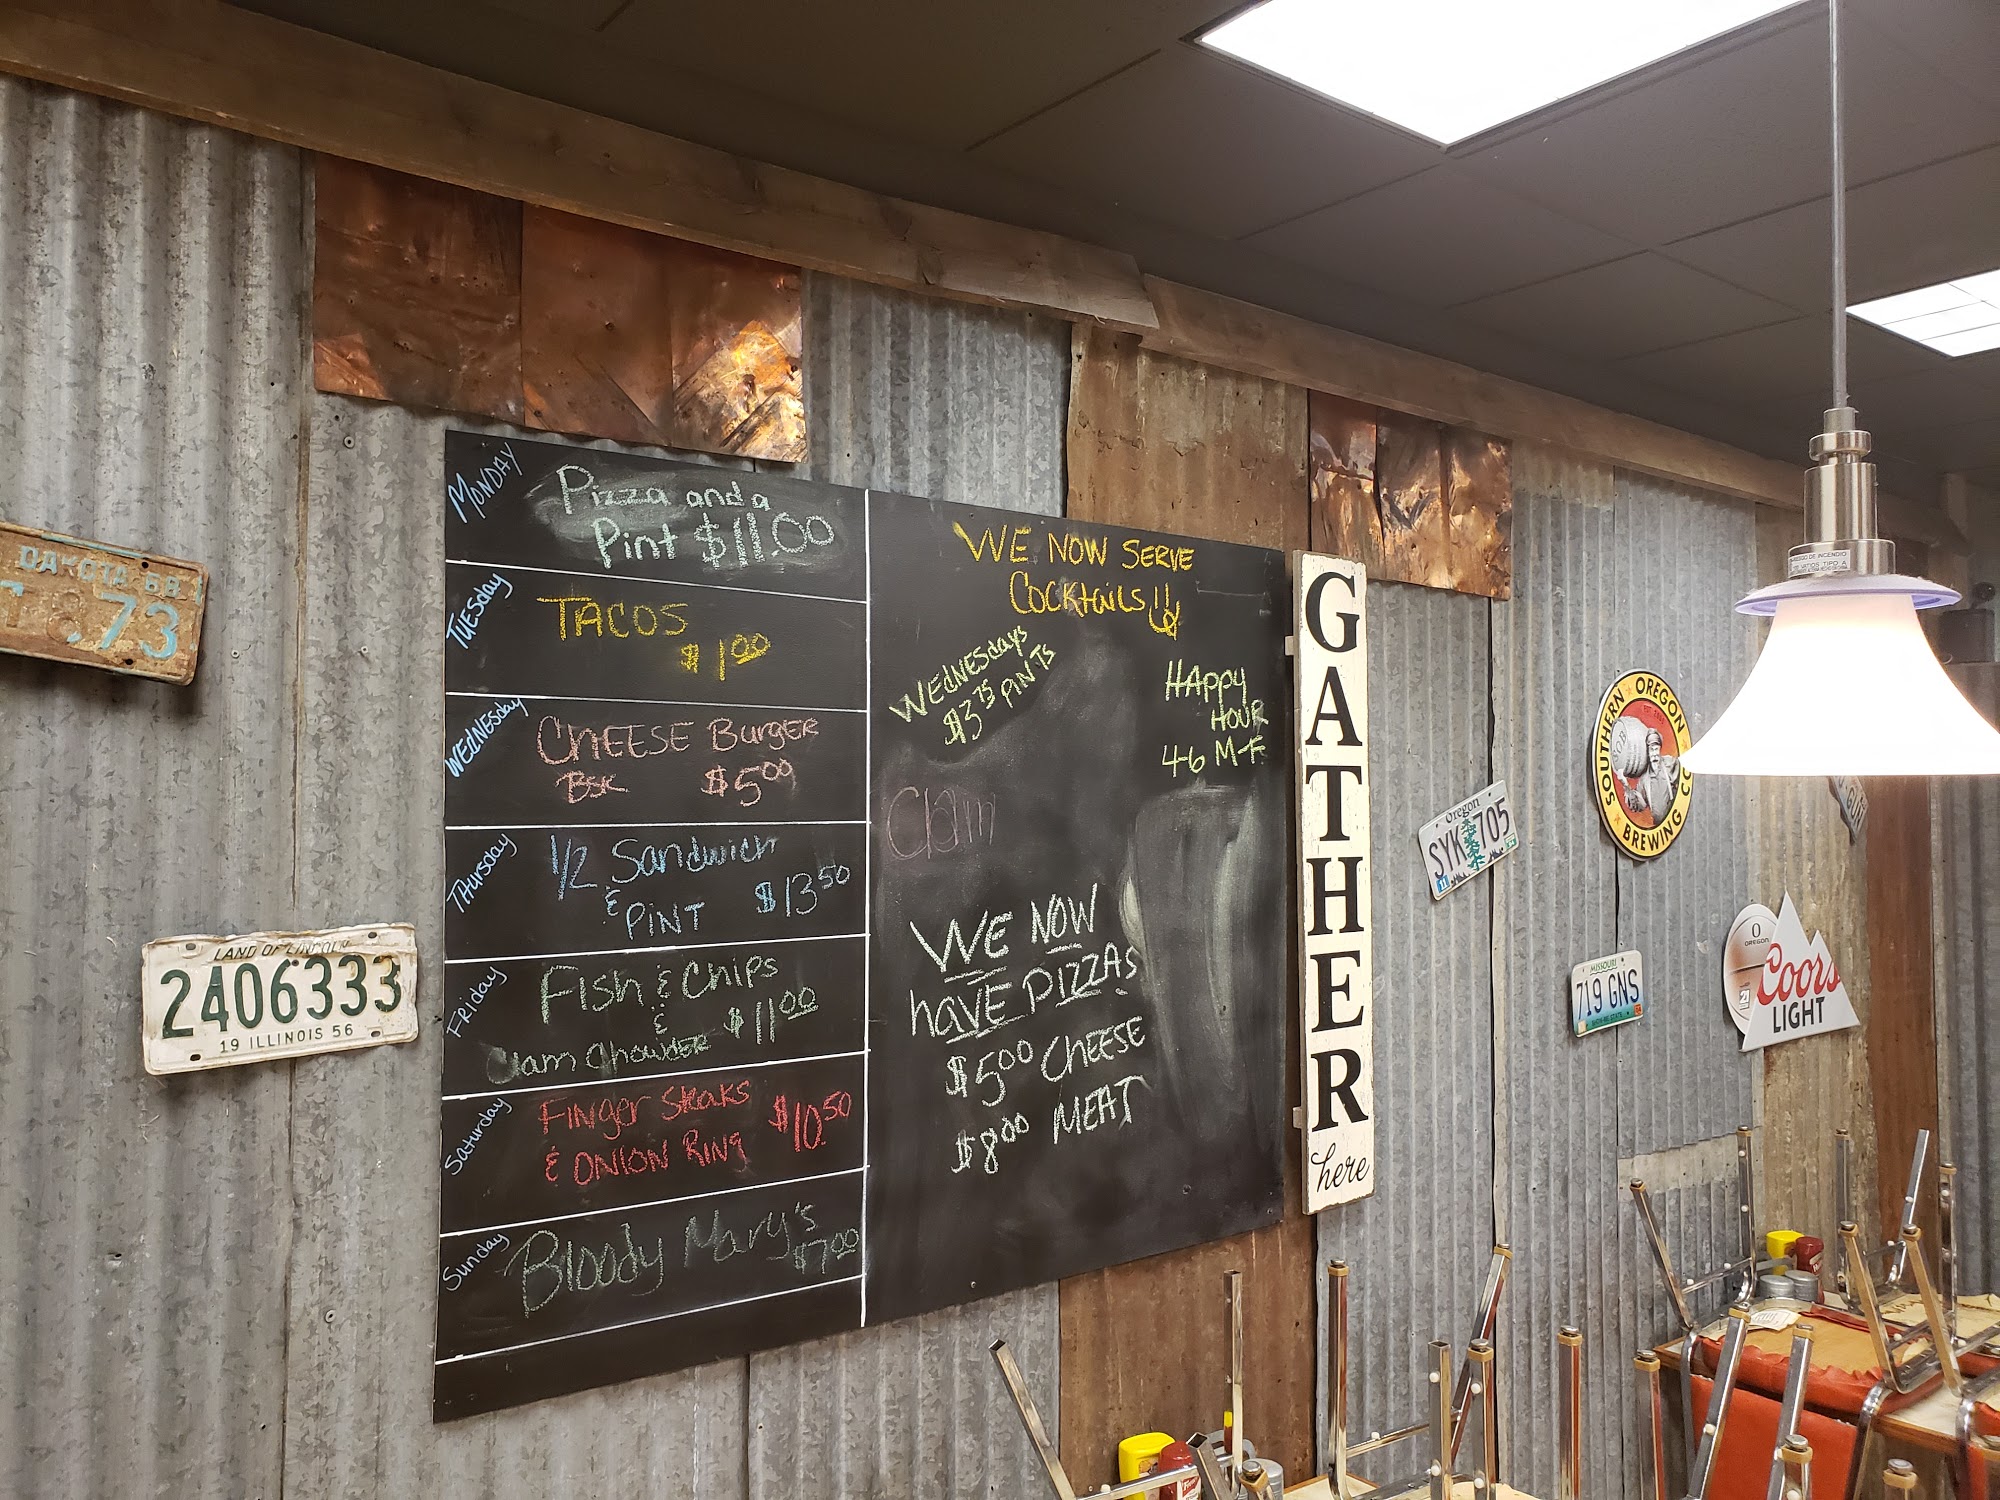 MONDAY
Pizza and a
Pint $11.00
TUESday
TACOS
$1.00
WEdNESday
CHEESE Burger
BSK $5.00
THursday
1/2 Sandwich
&
PINT $13.50
Friday
Fish & Chips
&
Clam Chowder $11.00
Saturday
Finger Steaks
& ONION RING $10.50
Sunday
Bloody Mary's
$7.00
WE NOW SERVE
COCKTAILS!!
WEdNESdays
$3.75 PINTS
HAppy
HOUR
4-6 M-F
Clam
WE NOW
HAVE PIZZAS
$5.00 CHEESE
$8.00 MEAT
GATHER
here
DAKOTA 68
73
LAND OF LINCOLN
2406333
19 ILLINOIS 56
Oregon
SYK 705
SOUTHERN OREGON
BREWING CO
MISSOURI
719 GNS
SHOW-ME STATE
O
OREGON
21
Coors
LIGHT